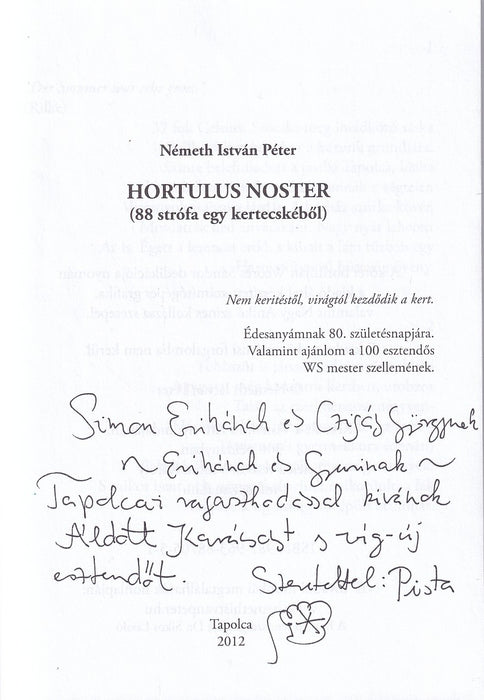 Németh István Péter
HORTULUS NOSTER
(88 strófa egy kertecskéből)
Nem kerítéstől, virágtól kezdődik a kert.
Édesanyámnak 80. születésnapjára.
Valamint ajánlom a 100 esztendős
WS mester szellemének.
Simon Erikának és Czigány Györgynek
~ Erikának és Gyurinak ~
Tapolcai ragaszkodással kívánok
Áldott Karácsonyt s víg-új
esztendőt. Szeretettel: Pista
Tapolca
2012